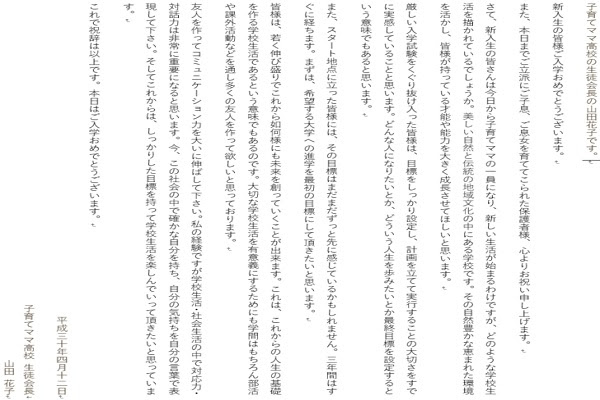 子育てママ高校の生徒会長の山田花子です。
新入生の皆様ご入学おめでとうございます。
また、本日までご立派にご子息、ご息女を育ててこられた保護者様、心よりお祝い申し上げます。
さて、新入生の皆さんは今日から子育てママの一員になり、新しい生活が始まるわけですが、どのような学校生
活を描かれているでしょうか。美しい自然と伝統の地域文化の中にある学校です。その自然豊かな恵まれた環境
を活かし、皆様が持っている才能や能力を大きく成長させてほしいと思います。
厳しい入学試験をくぐり抜け入った皆様は、目標をしっかり設定し、計画を立てて実行することの大切さをすで
に実感していることと思います。どんな人になりたいとか、どういう人生を歩みたいとか最終目標を設定すると
いう意味でもあると思います。
また、スタート地点に立った皆様には、その目標はまだまだずっと先に感じているかもしれません。三年間はす
ぐに経ちます。まずは、希望する大学への進学を最初の目標にして頂きたいと思います。
皆様は、若く伸び盛りでこれから如何様にも未来を創っていくことが出来ます。これは、これからの人生の基礎
を作る学校生活であるという意味でもあるのです。大切な学校生活を有意義にするためにも学問はもちろん部活
や課外活動などを通し多くの友人を作って欲しいと思っております。
友人を作ってコミュニケーション力を大いに伸ばして下さい。私の経験ですが学校生活・社会生活の中で対応力・
対話力は非常に重要になると思います。今、この社会の中で確かな自分を持ち、自分の気持ちを自分の言葉で表
現して下さい。そしてこれからは、しっかりした目標を持って学校生活を楽しんでいって頂きたいと思っていま
す。
これで祝辞は以上です。本日はご入学おめでとうございます。
平成三十年四月十二日
子育てママ高校 生徒会長
山田 花子